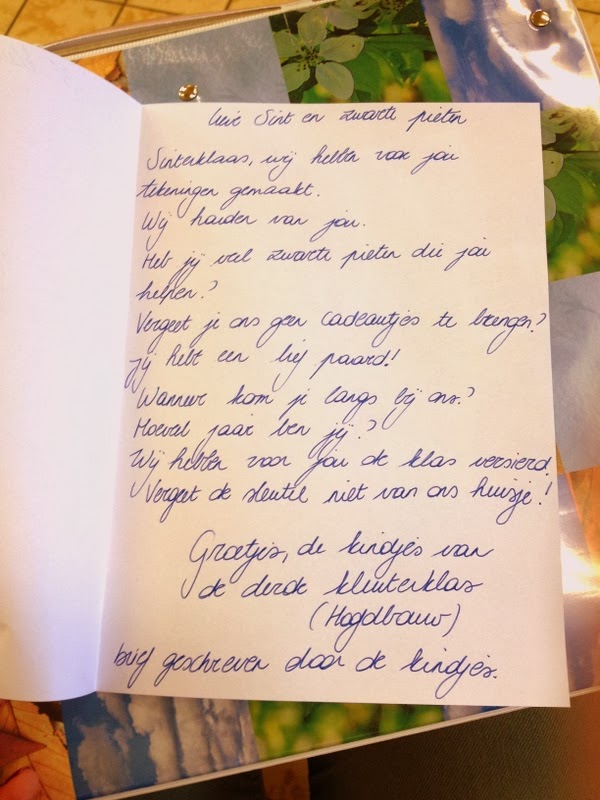 lieve Sint en zwarte pieten
Sinterklaas, wij hebben voor jou
tekeningen gemaakt.
Wij houden van jou.
Heb jij veel zwarte pieten die jou
helpen?
Vergeet je ons geen cadeautjes te brengen?
Jij hebt een lief paard!
Wanneer kom je langs bij ons?
Hoeveel jaar ben jij?
Wij hebben voor jou de klas versierd!
Vergeet de sleutel niet van ons huisje!
Groetjes, de kindjes van
de derde kleuterklas
(Hogdbouw)
brief geschreven door de kindjes.